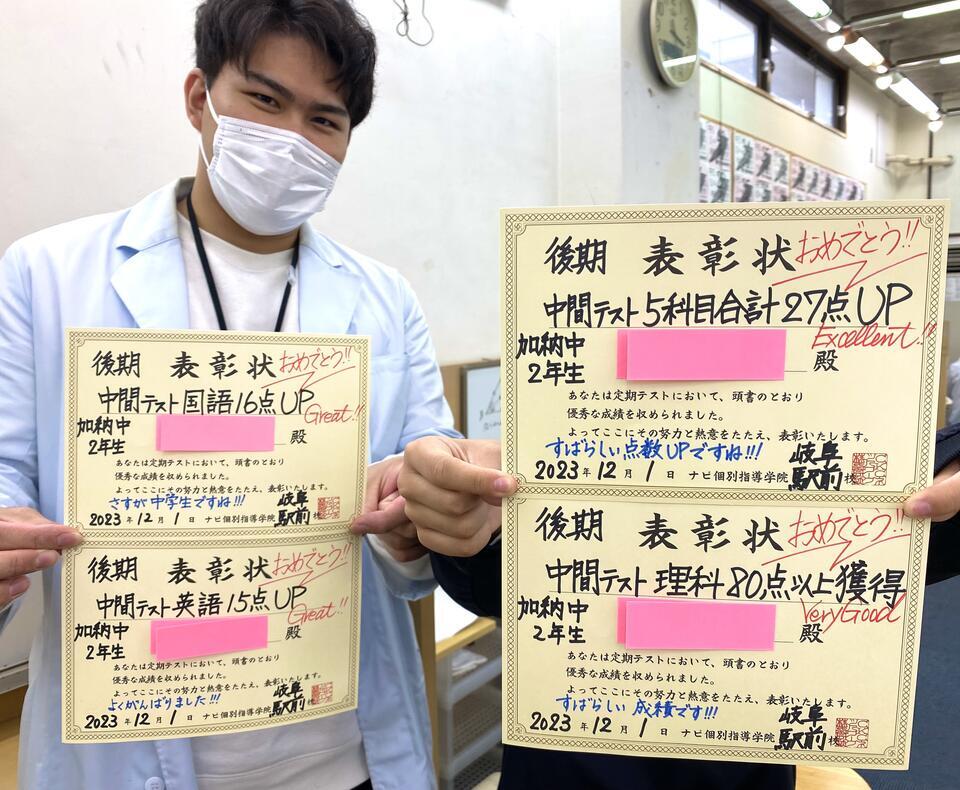 後期 表彰状 おめでとう!!
中間テスト国語16点UP
Great!!
加納中
2年生
殿
あなたは定期テストにおいて、頭書のとおり
優秀な成績を収められました。
よってここにその努力と熱意をたたえ、表彰いたします。
さすが中学生ですね!!!
2023年12月1日 ナビ個別指導学院 岐阜駅前校
後期 表彰状 おめでとう!!
中間テスト英語15点UP
Great!!
加納中
2年生
殿
あなたは定期テストにおいて、頭書のとおり
優秀な成績を収められました。
よってここにその努力と熱意をたたえ、表彰いたします。
よくがんばりました!!!
2023年12月1日 ナビ個別指導学院 岐阜駅前校
後期 表彰状 おめでとう!!
中間テスト5科目合計27点UP
Excellent!!
加納中
2年生
殿
あなたは定期テストにおいて、頭書のとおり
優秀な成績を収められました。
よってここにその努力と熱意をたたえ、表彰いたします。
すばらしい点数UPですね!!!
2023年12月1日 ナビ個別指導学院 岐阜駅前校
後期 表彰状 おめでとう!!
中間テスト理科80点以上獲得
Very Good
加納中
2年生
殿
あなたは定期テストにおいて、頭書のとおり
優秀な成績を収められました。
よってここにその努力と熱意をたたえ、表彰いたします。
すばらしい成績です!!!
2023年12月1日 ナビ個別指導学院 岐阜駅前校